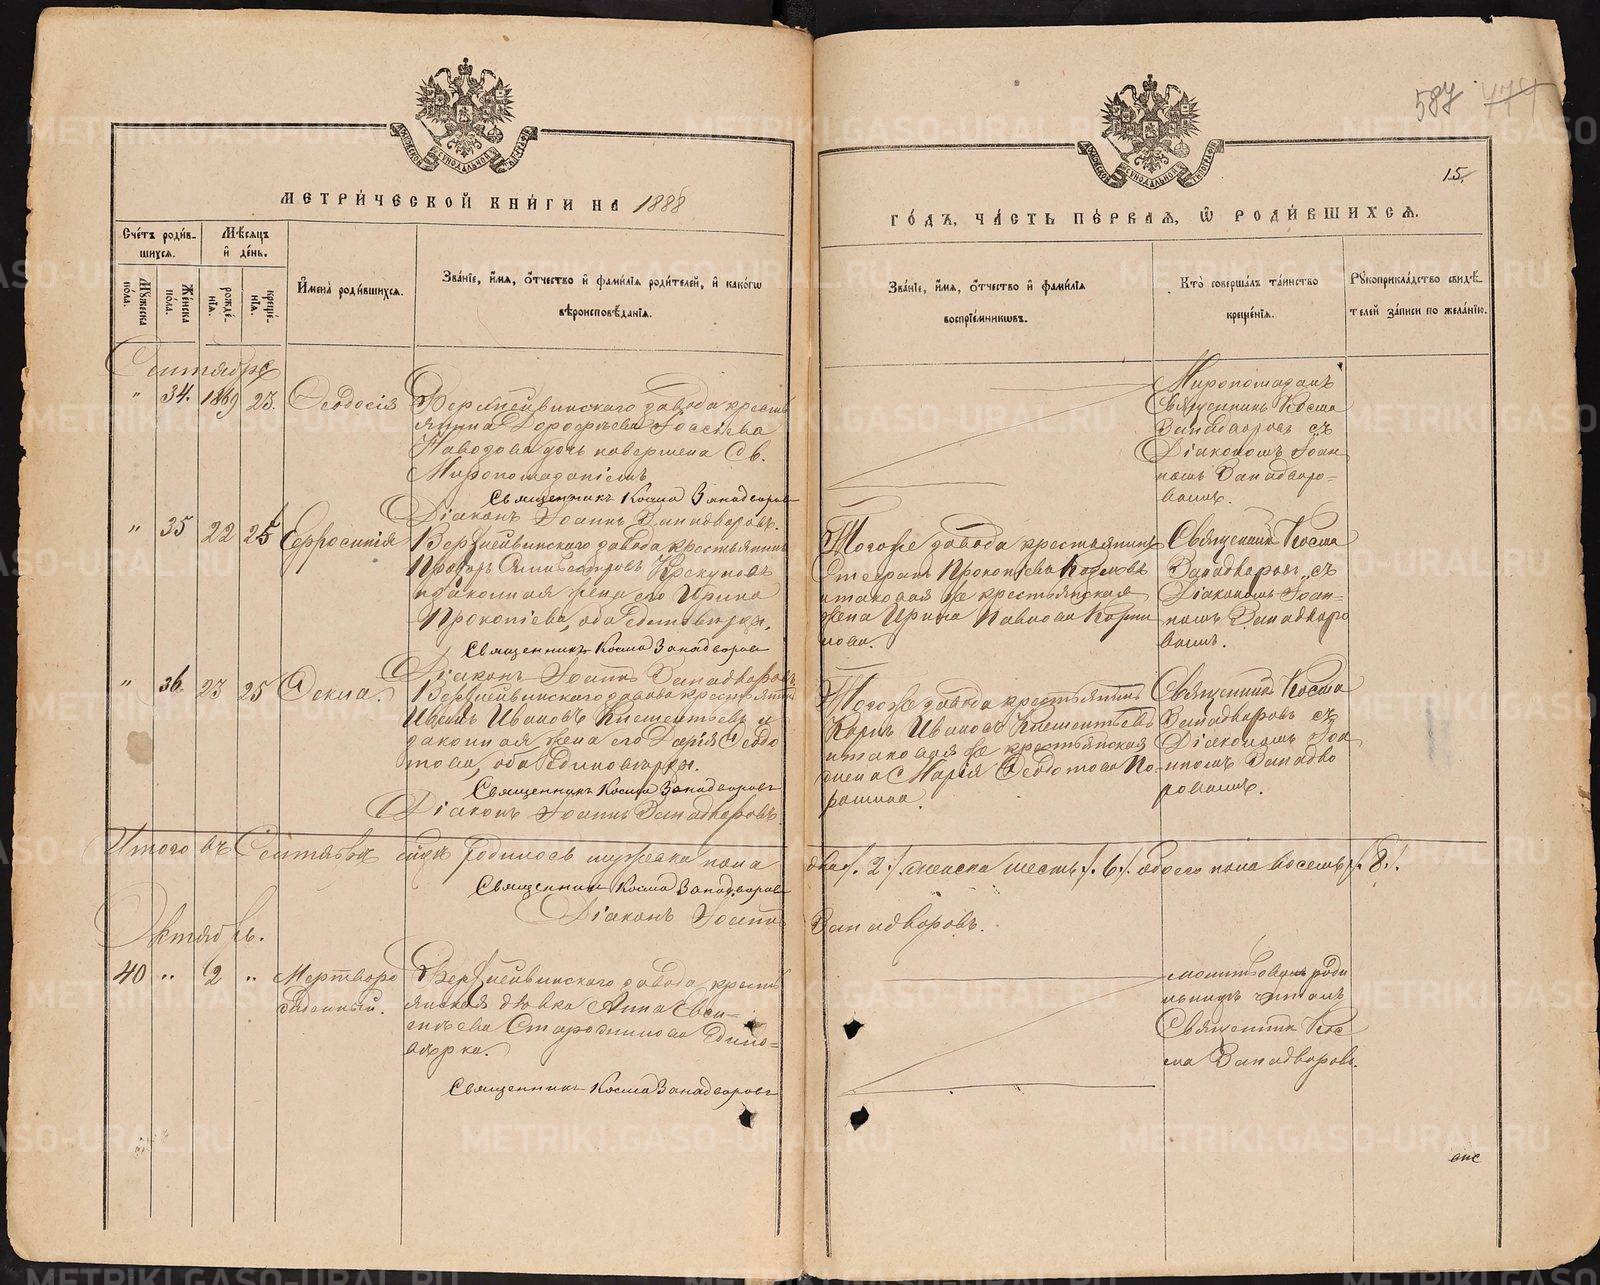 587 474
15.
МЕТРИ́ЧЕСКОЙ КНИ́ГИ НА 1888
ГО́ДЪ, ЧА́СТЬ ПЕ́РВАЯ, Ѡ҆ РОДИ́ВШИХСЯ.
Сче́тъ роди́в-
шихся.
Мѣ́сяцъ
и҆ де́нь.
Мꙋ́жеска по́ла.
Же́нска по́ла.
рожде́-
нїя.
креще́-
нїя.
И҆мена̀ роди́вшихся.
Зва́нїе, и҆́мя, ѻ҆́тчество и҆ фами́лїя роди́телей, и҆ како́гѡ
вѣроисповѣ́данїя.
Зва́нїе, и҆́мя, ѻ҆́тчество и҆ фами́лїя
воспрїе́мникѡвъ.
Кто̀ соверша́лъ та́инство
креще́нїя.
Рꙋкоприкла́дство свидѣ́-
телей за́писи по жела́нїю.
Сентябрь
" 34. 1869 23. Ѳеодосія
Верхнейвинскаго завода кресть
янина Дорофѣева
дочь повершена Св.
Миропомазаніемъ
Священникъ Косма Западворовъ
Діаконъ Іоаннъ Западворовъ.
Миропомазалъ
Священникъ Косма
Западворовъ съ
Діакономъ Іоан
номъ Западворо-
вымъ.
" 35 22 25 Евфросинія
Верхнейвинскаго завода крестьянинъ
Прохоръ Силивестровъ
и законная жена его Ирина
Прокопіева, оба единовѣрцы.
Священникъ Косма Западворовъ
Діаконъ Іоаннъ Западворовъ.
Тогоже завода крестьянинъ
Стефанъ Прокопіевъ
и таковая же крестьянская
жена Ирина Павлова Корми
лова.
Священникъ Косма
Западворовъ съ
Діакономъ Іоан-
номъ Западворо
вымъ.
" 36. 23 25 Ѳекла.
Верхнейвинскаго завода крестьянинъ
Иванъ Ивановъ Клементьевъ и
законная жена его Дарія Ѳеодо
това, оба единовѣрцы.
Священникъ Косма Западворовъ
Діаконъ Іоаннъ Западворовъ.
Тогоже завода крестьянинъ
Карпъ Ивановъ Клементьевъ
и таковая же крестьянская
Марія Ѳеодотова По-
рошина.
Священникъ Косма
Западворовъ съ
Діакономъ Іоан
номъ Западво
ровымъ.
Итого въ Сентябрѣ родилось мужеска пола два /. 2 ./ женска шесть /. 6 ./ обоего пола восемь /. 8 ./
Священникъ Косма Западворовъ
Діаконъ Іоаннъ Западворовъ.
Октябрь.
40 " 2 " Мертворо
жденный.
Верхнейвинскаго завода кресть
янская дѣвка Анна Евси-
гнѣева едино-
вѣрка.
Священникъ Косма Западворовъ
молитву роди
льницѣ читалъ
Священникъ Кос
ма Западворовъ.
METRIKI.GASO-URAL.RU